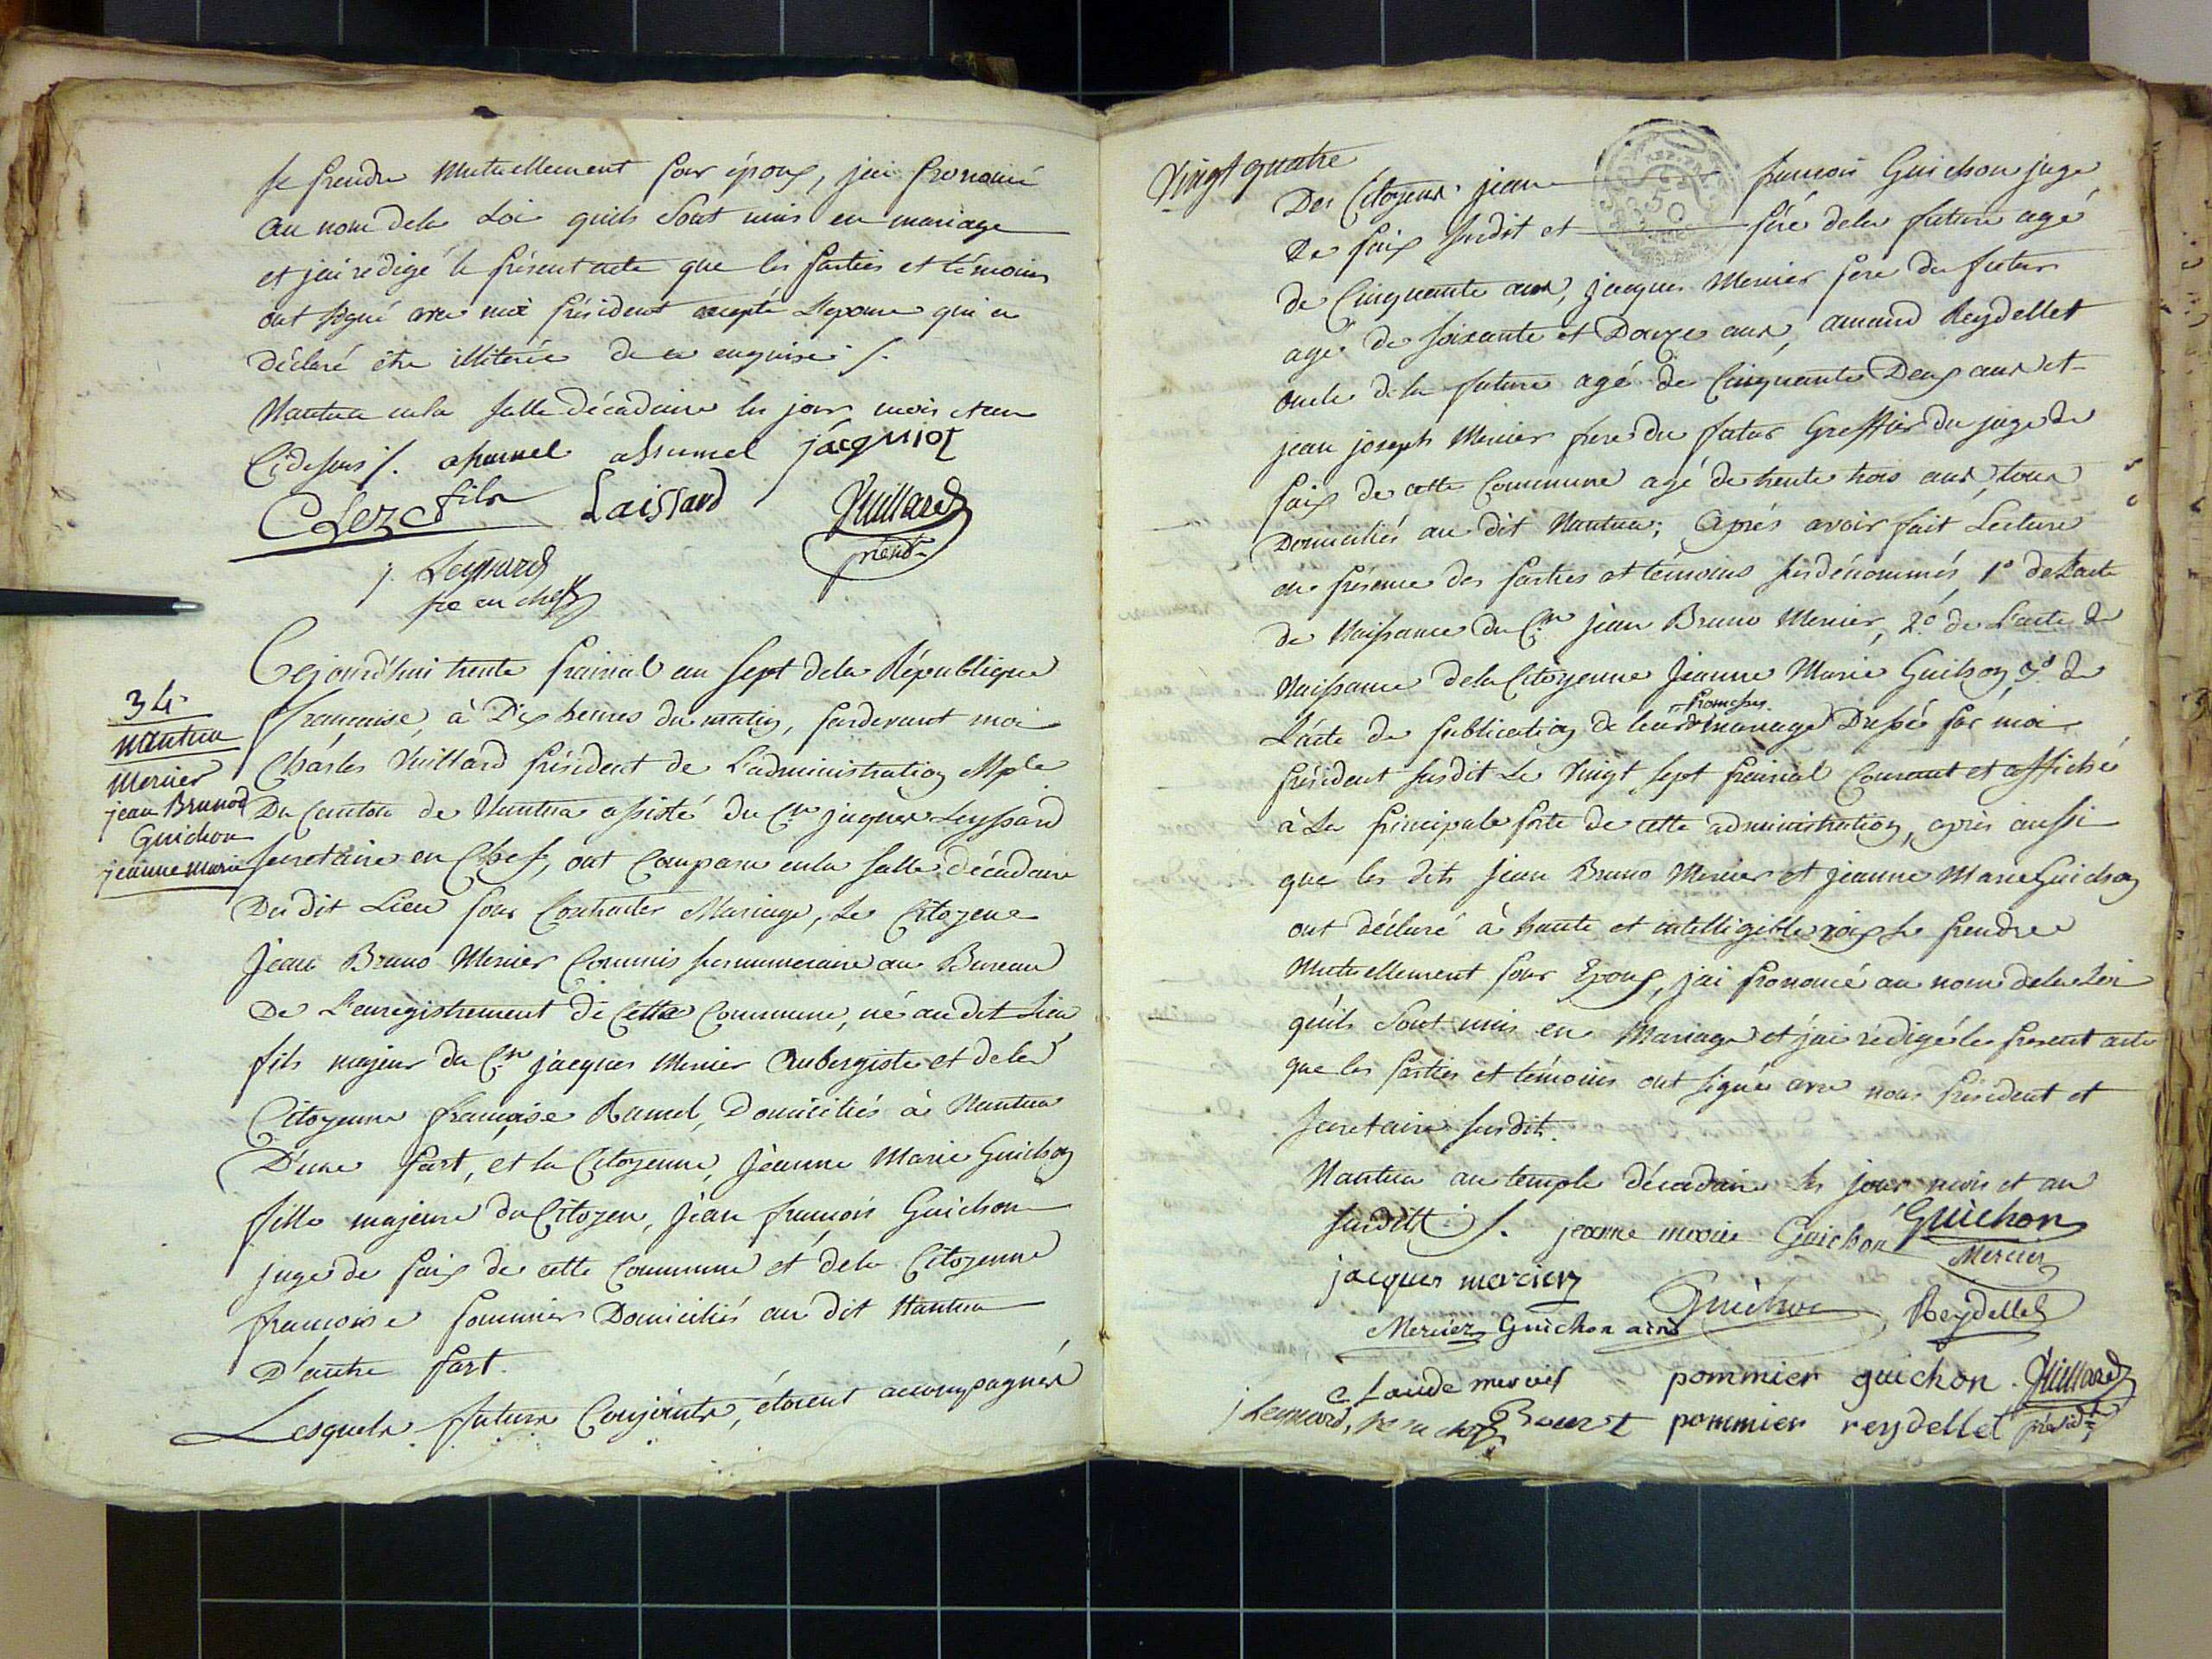 se prendre mutuellement pour époux, jai prononcé
au nom de la Loi quils sont unis en mariage
et jai redigé le présent acte que les parties et témoins
ont signé avec moi président excepté L'epouse qui a
déclaré être illiterée de ce enquise /.
Nantua en la salle décadaire les jour mois et an
Cidessus /. assumel jacquiot
CLerc fils Laissard Vuillard
présdt
j. Leyssard
sre en chef
34
nantua
Mercier
jean Brunod
Guichon
jeanne marie
Cejourd'hui trente prairial an sept de la République
française, à Dix heures du matin, pardevant moi
Charles Vuillard président de L'administration Mple
Du Canton de Nantua assisté du Cen jaques Leyssard
secretaire en Chef, ont Comparu en la salle décadaire
Du dit Lieu pour Contracter Mariage, Le Citoyen
Jean Bruno Mercier Commis surnumeraire au Bureau
De L'enregistrement de Cette Commune, né au dit Lieu
fils majeur du Cen jacques Mercier Aubergiste et de la
Citoyenne françoise Ramel, Domiciliés à Nantua
D'une part, et la Citoyenne, Jeanne Marie Guichon
fille majeure du Citoyen, Jean françois Guichon
juge de paix de cette Commune et de la Citoyenne
francoise pommier Domiciliés au dit Nantua
D'autre part.
Lesquels futurs Conjoints, étoient accompagnés
Vingt quatre
Des Citoyens jean françois Guichon juge
De paix susdit et père de la future agé
de Cinquante ans, jacques Mercier pere du futur
agé de soixante et Douze ans, amand Reydellet
oncle de la future agé de Cinquante Deux ans et
jean joseph Mercier frere du futur Greffier du juge de
paix de cette Commune agé de trente trois ans, tous
Domiciliés au dit Nantua; Après avoir fait Lecture
en présence des parties et témoins susdénommés, 1º de L'acte
de Naissance du Cen jean Bruno Mercier, 2º de L'acte de
Naissance de la Citoyenne Jeanne Marie Guichon, 3º de
promesses
L'acte de publication de leurs mariage Dressée par moi
président susdit Le Vingt sept prairial Courant et affiché
à La principale porte de cette administration, après aussi
que les dits Jean Bruno Mercier et Jeanne Marie Guichon
ont déclaré à haute et intelligible voix se prendre
Mutuellement pour Epoux, jai prononcé au nom de la Loi
quils sont unis en Mariage et jai rédigé le present acte
que les parties et témoins ont signé avec nous président et
secretaire susdits.
Nantua au temple décadaire les jour mois et an
susdits /. jeanne marie Guichon Guichon
Mercier
jacques mercier
Mercier Guichon ainé Guichon Reydellet
Claude mercier pommier guichon Vuillard
j Leyssard, sre en chef pommier reydellet présidt